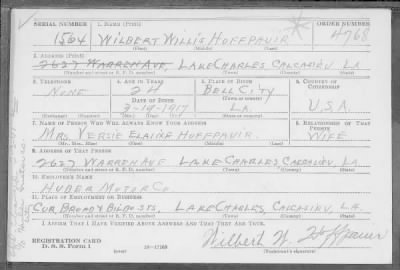 SERIAL NUMBER 1. NAME (Print) ORDER NUMBER
1564 WILBERT WILLIS HOFFPAUIR 4768
(First) (Middle) (Last)
2. ADDRESS (Print)
2627 WARREN AVE, LAKE CHARLES CALCASIEU, LA
(Number and street or R. F. D. number) (Town) (County) (State)
3. TELEPHONE 4. AGE IN YEARS 5. PLACE OF BIRTH 6. COUNTRY OF CITIZENSHIP
NONE 24 BELL CITY
DATE OF BIRTH (Town or county)
2-19-1917 LA. U.S.A.
(Mo.) (Day) (Yr.) (State or country)
7. NAME OF PERSON WHO WILL ALWAYS KNOW YOUR ADDRESS 8. RELATIONSHIP OF THAT PERSON
MRS. VERSIE ELAINE HOFFPAUIR WIFE
(Mr., Mrs., Miss) (First) (Middle) (Last)
9. ADDRESS OF THAT PERSON
2627 WARREN AVE LAKE CHARLES CALCASIEU, LA
(Number and street or R. F. D. number) (Town) (County) (State)
10. EMPLOYER'S NAME
HUBER MOTOR CO.
11. PLACE OF EMPLOYMENT OR BUSINESS
COR BROAD & BILBO STS, LAKE CHARLES, CALCASIEU, LA.
(Number and street or R. F. D. number) (Town) (County) (State)
I AFFIRM THAT I HAVE VERIFIED ABOVE ANSWERS AND THAT THEY ARE TRUE.
REGISTRATION CARD
D. S. S. FORM 1 (over) 16-17105 Wilbert W. Hoffpauir
(Registrant's signature)